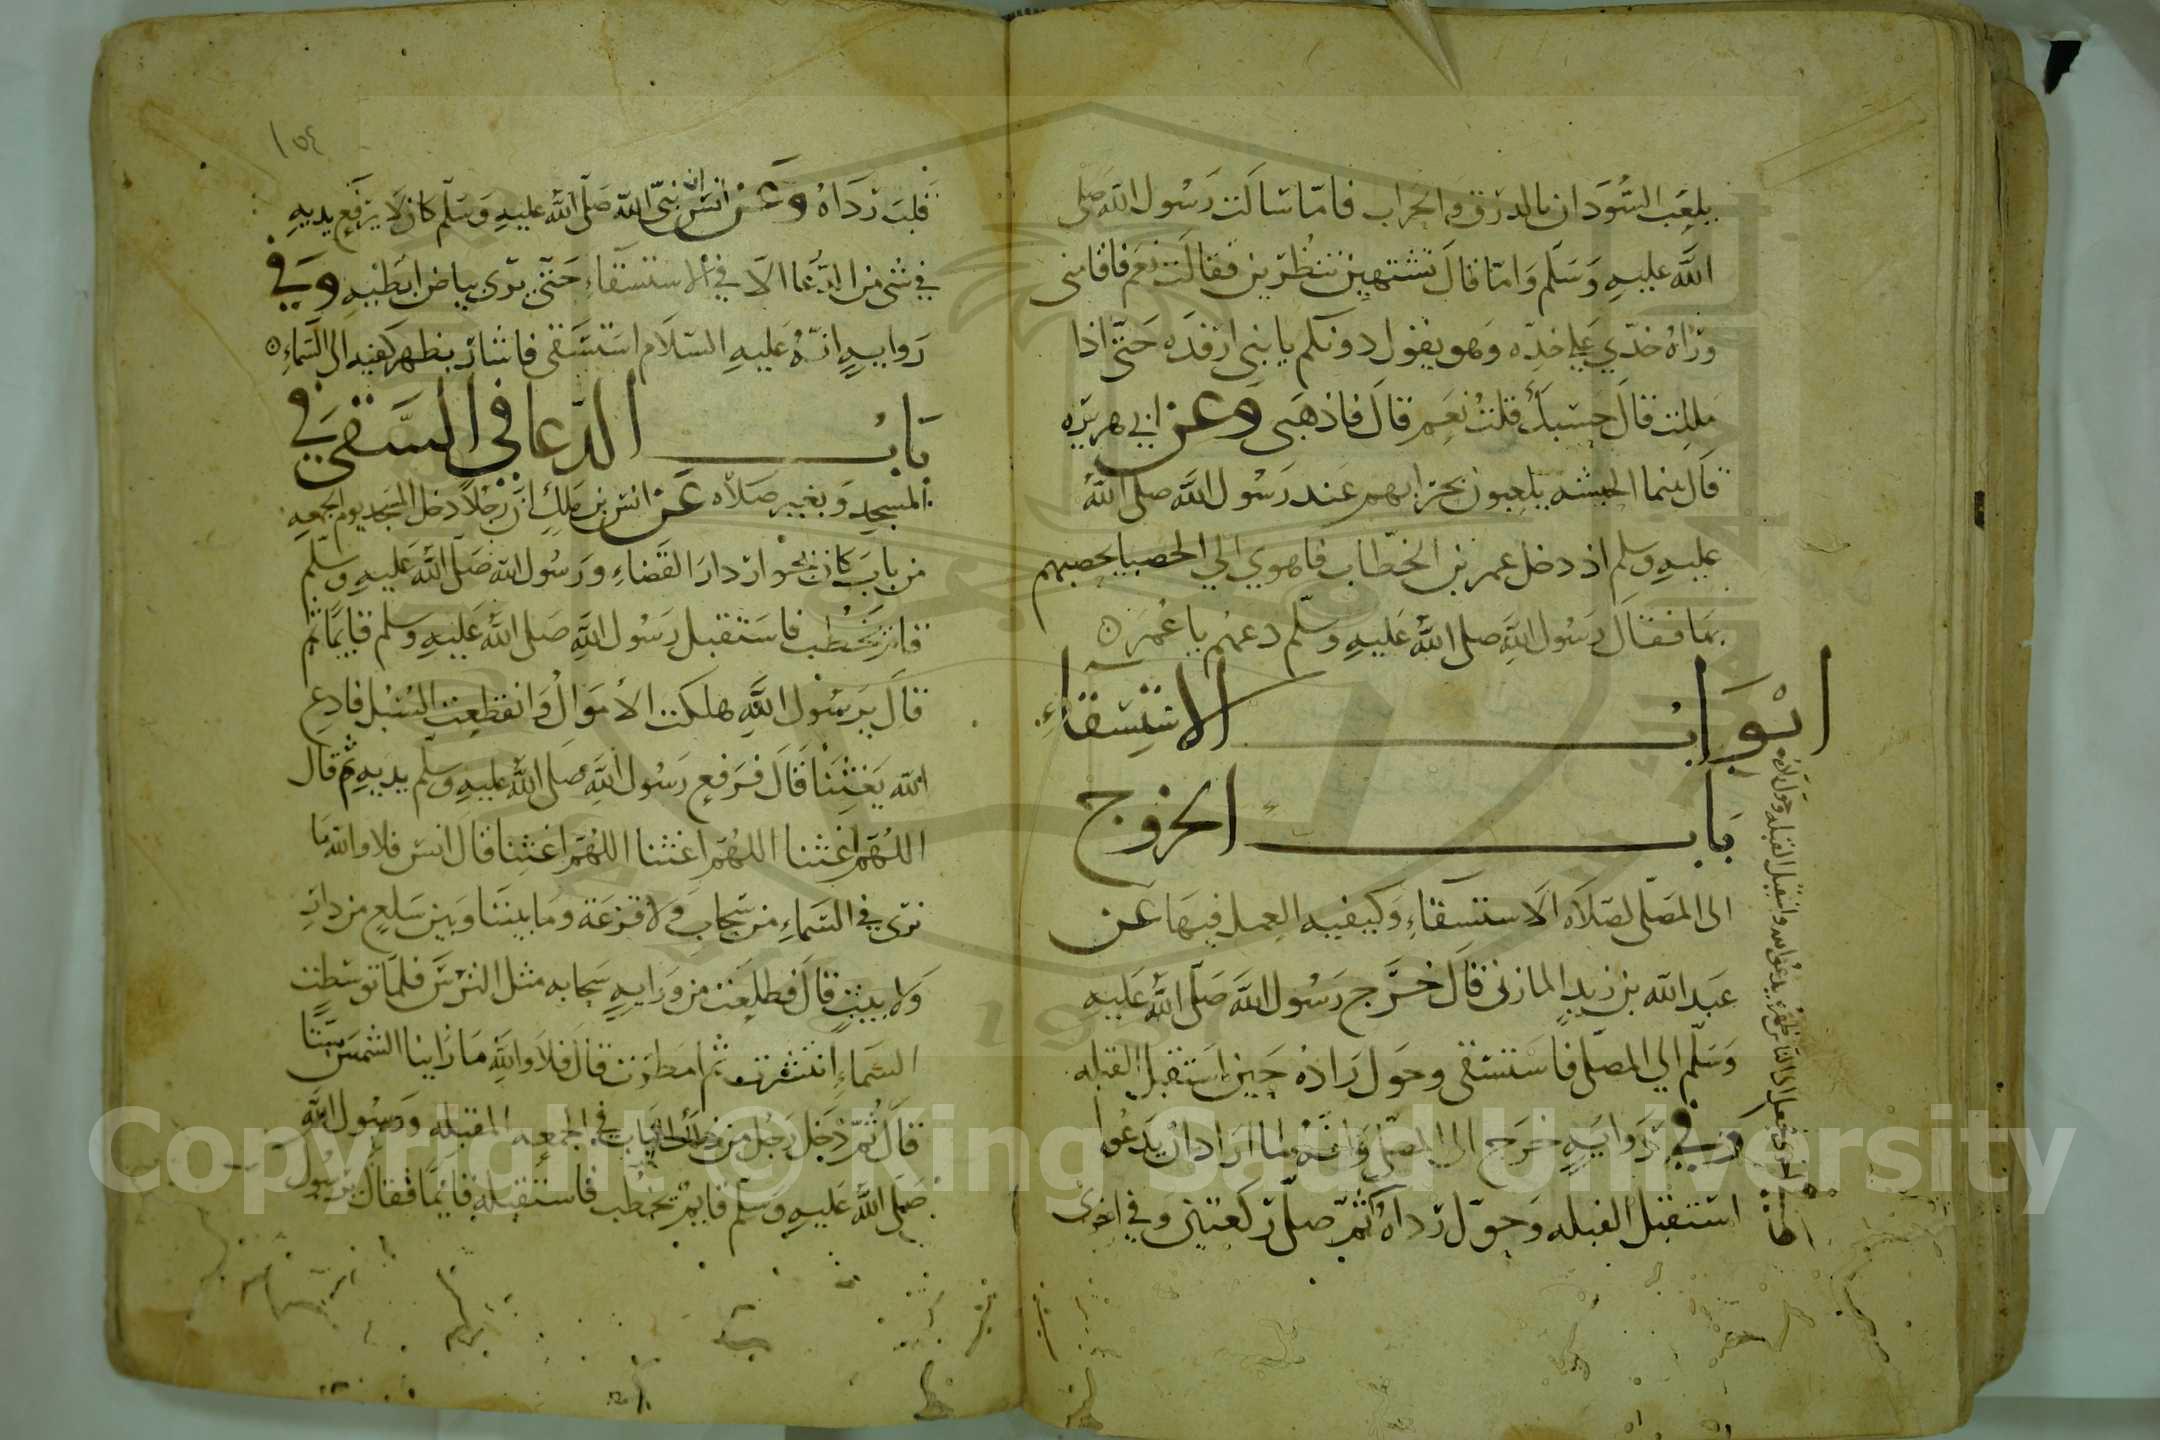 يلعب السودان بالدرق والحراب فاما سالت رسول الله صلى
الله عليه وسلم واما قال تشتهين تنظرين فقالت نعم فاقامنى
وراه خدي على خده وهو يقول دونكم يا بنى ارفده حتى اذا
مللت قال حسبك قلت نعم قال فاذهبى وعن ابي هريره
قال بينما الحبشه يلعبون بحرابهم عند رسول الله صلى الله
عليه وسلم اذ دخل عمر بن الخطاب فاهوي الي الحصبا يحصبهم
بها فقال رسول الله صلى الله عليه وسلم دعهم يا عمر
ابواب الاستسقاء
باب الخروج
الى المصلى لصلاه الاستسقاء وكيفيه العمل فيها عن
عبد الله بن زيد المازنى قال خرج رسول الله صلى الله عليه
وسلم الي المصلى فاستسقى وحول رداه حين استقبل القبله
وفي روايه خرج الى المصلى وانه لما اراد ان يدعوا
استقبل القبله وحول رداه ثم صلى ركعتين وفي اخرى
فجعل الى الناس ظهره يدعو الله واستقبل القبله وحول رداه
١٥٤
قلب رداه وعن انس ان نبى الله صلى الله عليه وسلم كان لا يرفع يديه
في شى من الدعا الا في الاستسقاء حتى يرى بياض ابطيه وفي
روايه انه عليه السلام استسقى فاشار بظهر كفيه الى السماء
باب الدعا في السقى في
المسجد وبغير صلاه عن انس بن ملك ان رجلا دخل المسجد يوم الجمعه
من باب كان نحو دار القضاء ورسول الله صلى الله عليه وسلم
قائم يخطب فاستقبل رسول الله صلى الله عليه وسلم قايما ثم
قال يرسول الله هلكت الاموال وانقطعت السبل فادع
الله يغثنا قال فرفع رسول الله صلى الله عليه وسلم يديه ثم قال
اللهم اغثنا اللهم اغثنا اللهم اغثنا قال انس فلا والله ما
نرى في السماء من سحاب ولا قزعة وما بيننا وبين سلع من دار
ولا بيت قال فطلعت من ورايه سحابه مثل الترس فلما توسطت
السماء انتشرت ثم امطرت قال فلا والله ما راينا الشمس سبتا
قال ثم دخل رجل من ذلك الباب في الجمعه المقبله ورسول الله
صلى الله عليه وسلم قايم يخطب فاستقبله قايما فقال يرسول
Copyright © King Saud University